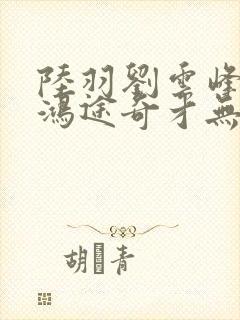 陸羽劉雲峰
鴻途奇才無
胡青